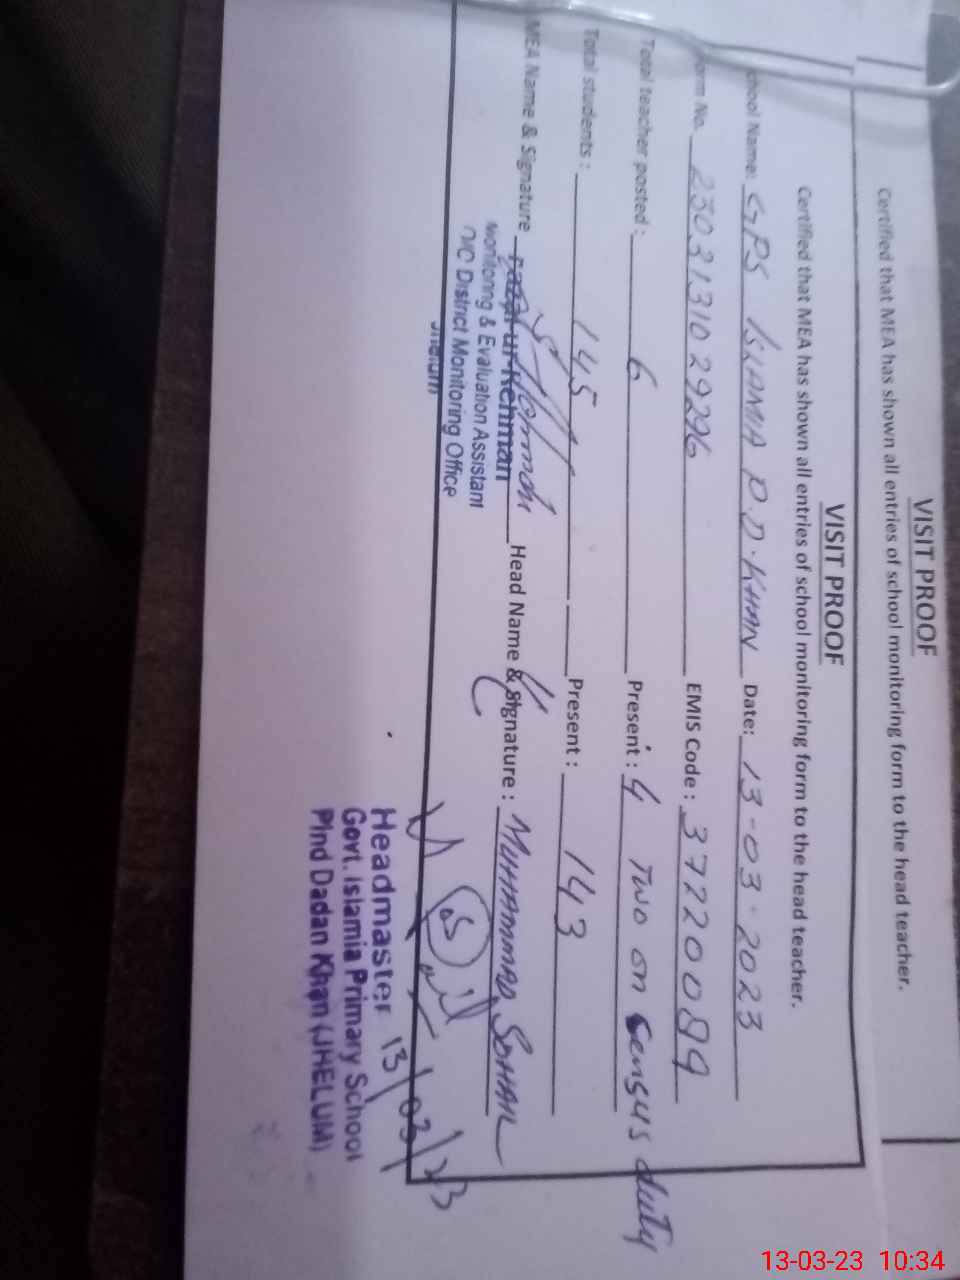 VISIT PROOF
Certified that MEA has shown all entries of school monitoring form to the head teacher.
VISIT PROOF
Certified that MEA has shown all entries of school monitoring form to the head teacher.
chool Name: GPS ISLAMIA P.D.KHAN Date: 13-03-2023
orm No. 23031310 29296 EMIS Code : 37220089
Total teacher posted : 6 Present : 4 Two on Census duty
Total students : 145 Present : 143
MEA Name & Signature ur-Rehman Head Name & Signature : MUHAMMAD SOHAIL
Monitoring & Evaluation Assistant
District Monitoring Office
Jhelum
Headmaster 13/03/23
Govt. Islamia Primary School
Pind Dadan Khan (JHELUM)
13-03-23 10:34